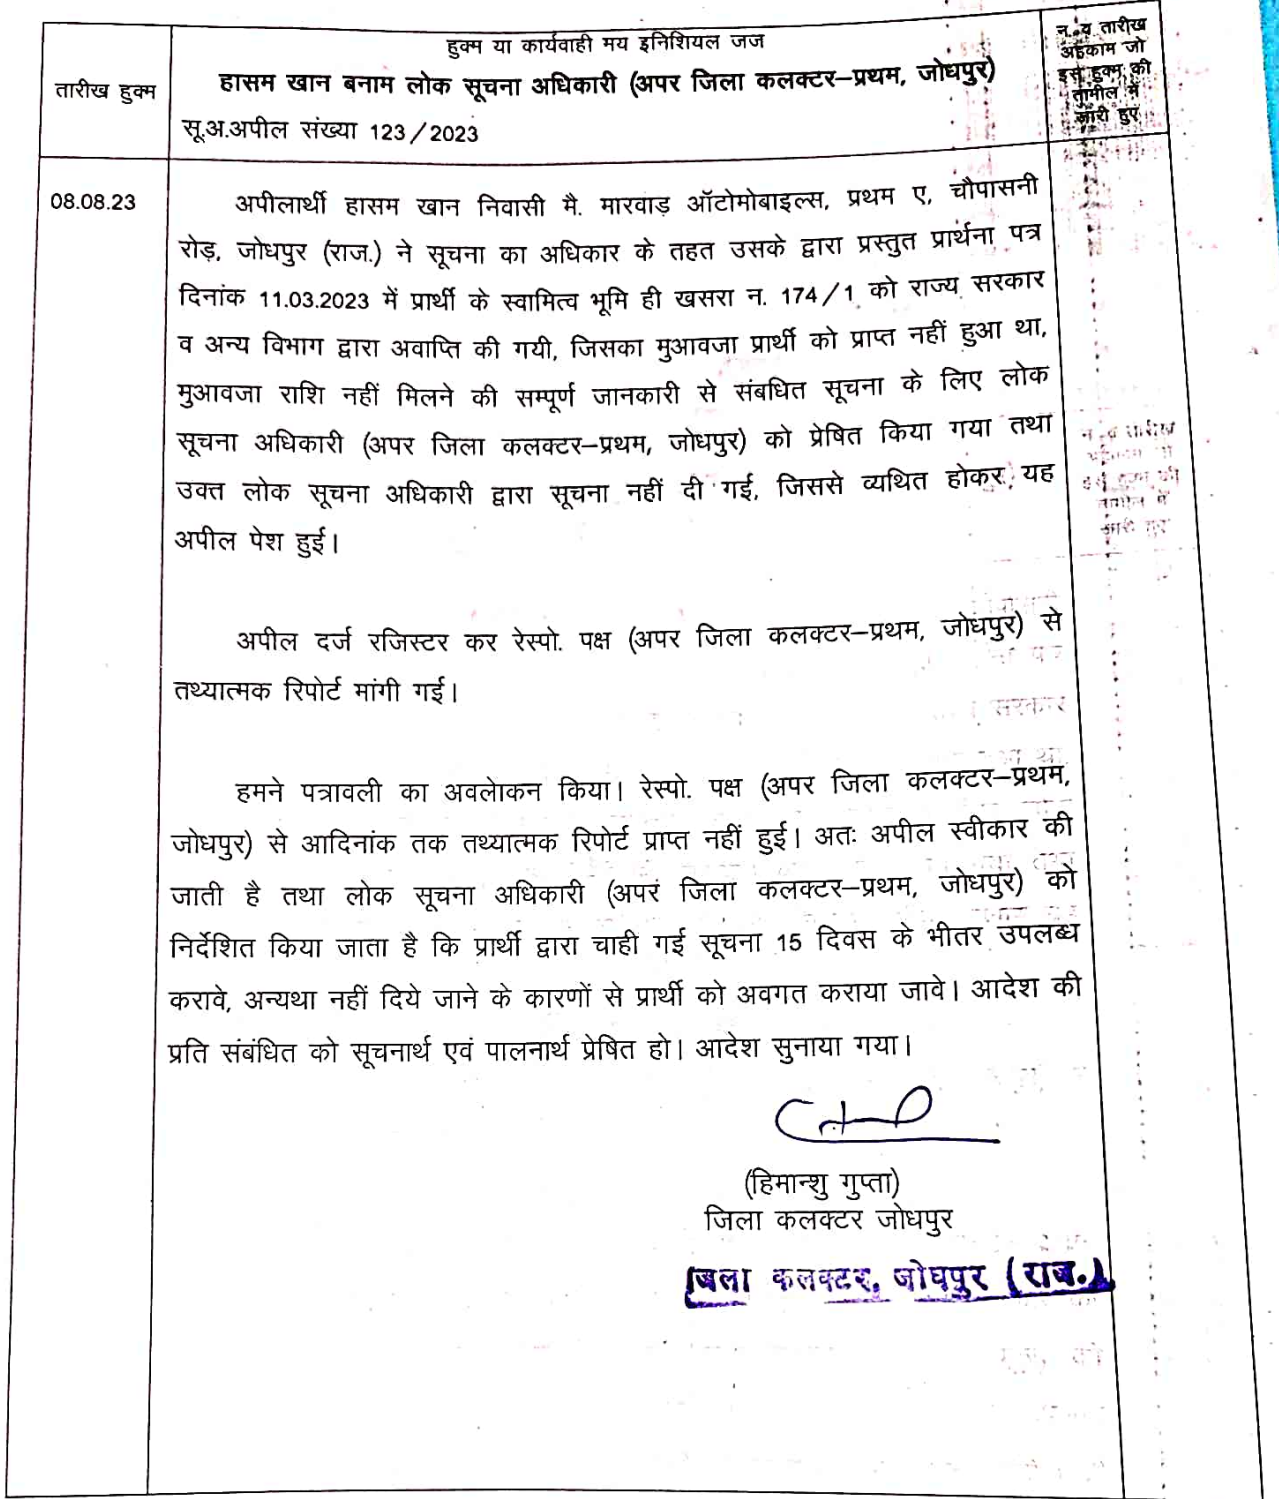 हुक्म या कार्यवाही मय इनिशियल जज
हासम खान बनाम लोक सूचना अधिकारी (अपर जिला कलक्टर–प्रथम, जोधपुर)
सू.अ.अपील संख्या 123/2023
तारीख हुक्म
न. व तारीख
अहकाम जो
इस हुक्म की
तामील में
जारी हुए
08.08.23
अपीलार्थी हासम खान निवासी मै. मारवाड़ ऑटोमोबाइल्स, प्रथम ए, चौपासनी
रोड़, जोधपुर (राज.) ने सूचना का अधिकार के तहत उसके द्वारा प्रस्तुत प्रार्थना पत्र
दिनांक 11.03.2023 में प्रार्थी के स्वामित्व भूमि ही खसरा न. 174/1 को राज्य सरकार
व अन्य विभाग द्वारा अवाप्ति की गयी, जिसका मुआवजा प्रार्थी को प्राप्त नहीं हुआ था,
मुआवजा राशि नहीं मिलने की सम्पूर्ण जानकारी से संबधित सूचना के लिए लोक
सूचना अधिकारी (अपर जिला कलक्टर–प्रथम, जोधपुर) को प्रेषित किया गया तथा
उक्त लोक सूचना अधिकारी द्वारा सूचना नहीं दी गई, जिससे व्यथित होकर यह
अपील पेश हुई।
अपील दर्ज रजिस्टर कर रेस्पो. पक्ष (अपर जिला कलक्टर–प्रथम, जोधपुर) से
तथ्यात्मक रिपोर्ट मांगी गई।
हमने पत्रावली का अवलोकन किया। रेस्पो. पक्ष (अपर जिला कलक्टर–प्रथम,
जोधपुर) से आदिनांक तक तथ्यात्मक रिपोर्ट प्राप्त नहीं हुई। अतः अपील स्वीकार की
जाती है तथा लोक सूचना अधिकारी (अपर जिला कलक्टर–प्रथम, जोधपुर) को
निर्देशित किया जाता है कि प्रार्थी द्वारा चाही गई सूचना 15 दिवस के भीतर उपलब्ध
करावे, अन्यथा नहीं दिये जाने के कारणों से प्रार्थी को अवगत कराया जावे। आदेश की
प्रति संबंधित को सूचनार्थ एवं पालनार्थ प्रेषित हो। आदेश सुनाया गया।
(हिमान्शु गुप्ता)
जिला कलक्टर जोधपुर
जिला कलक्टर, जोधपुर (राज.)